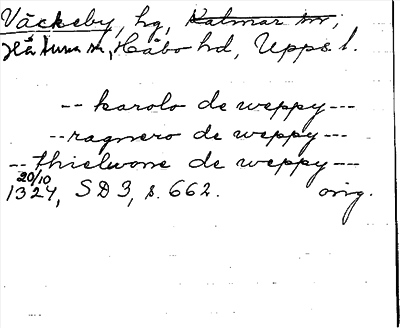 Väckeby, hg, Kalmar sn;
Håtuna sn, Håbo hd, Upps. l.
-- karolo de weppy ---
-- ragnero de weppy ---
-- thielwone de weppy ---
20/10
1324, SD 3, s. 662. orig.